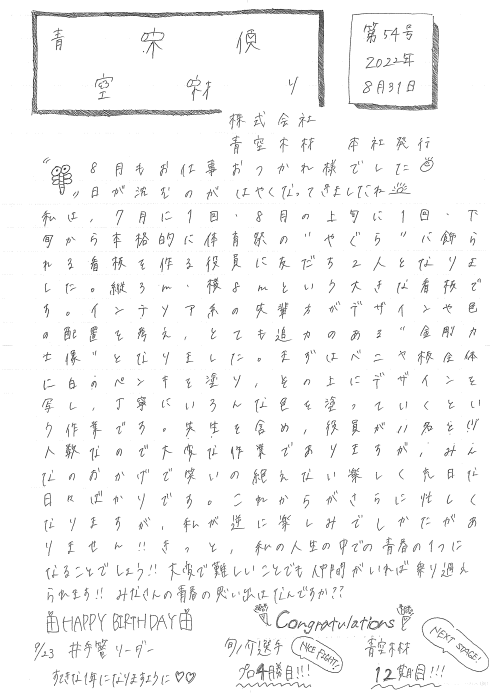 青空
第54号
2022年
8月31日
株式会社
青空木材 本社発行
8月もお仕事おつかれ様でした
日が沈むのがはやくなってきましたね
私は、7月に1回、8月の上旬に1回、下
旬から本格的に体育祭の"やぐら"に飾ら
れる看板を作る役員に友だち2人となりま
した。縦3m・横8mという大きな看板で
す。インテリア系の先輩方がデザインや色
の配置を考え、とても迫力のある"金剛力
士像"となりました。まずはベニヤ板全体
に白のペンキを塗り、その上にデザインを
写し、丁寧にいろんな色を塗っていくとい
う作業です。先生を含め、役員が11名と少
人数なので大変な作業でありますが、みん
なのおかげで笑いの絶えない楽しく充日な
日々ばかりです。これからがさらに忙しく
なりますが、私が逆に楽しみでしかたがあ
りません!!きっと、私の人生の中での青春の1つに
なることでしょう!!大変で難しいことでも仲間がいれば乗り越え
られます!!みなさんの青春の思い出はなんですか??
HAPPY BIRTHDAY
Congratulations
9/23 井手 リーダー
すてきな1年になりますように♡♡
旬ノ介選手
NICE FIGHT!
プロ4勝目!!!
青空木材
NEXT STAGE!
12期目!!!